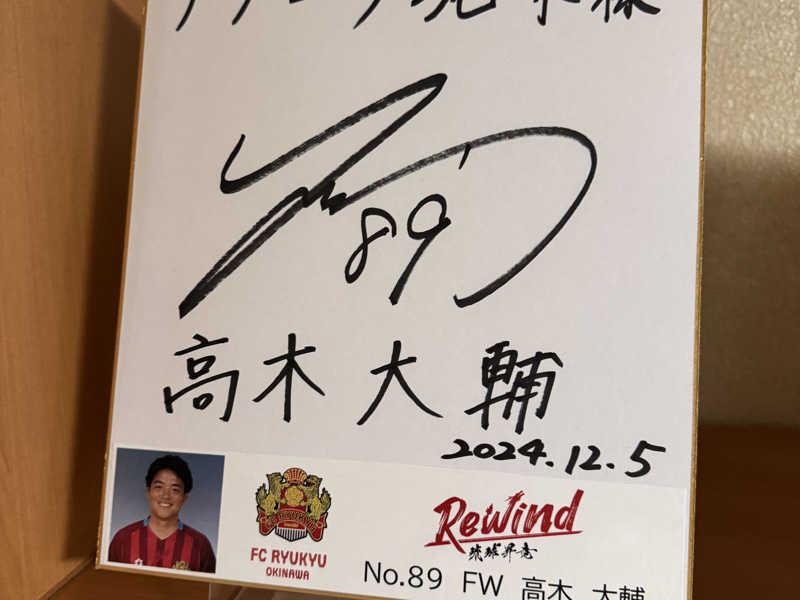 89
高木大輔
2024.12.5
FC RYUKYU
OKINAWA
Rewind
琉球昇竜
No.89 FW 高木 大輔